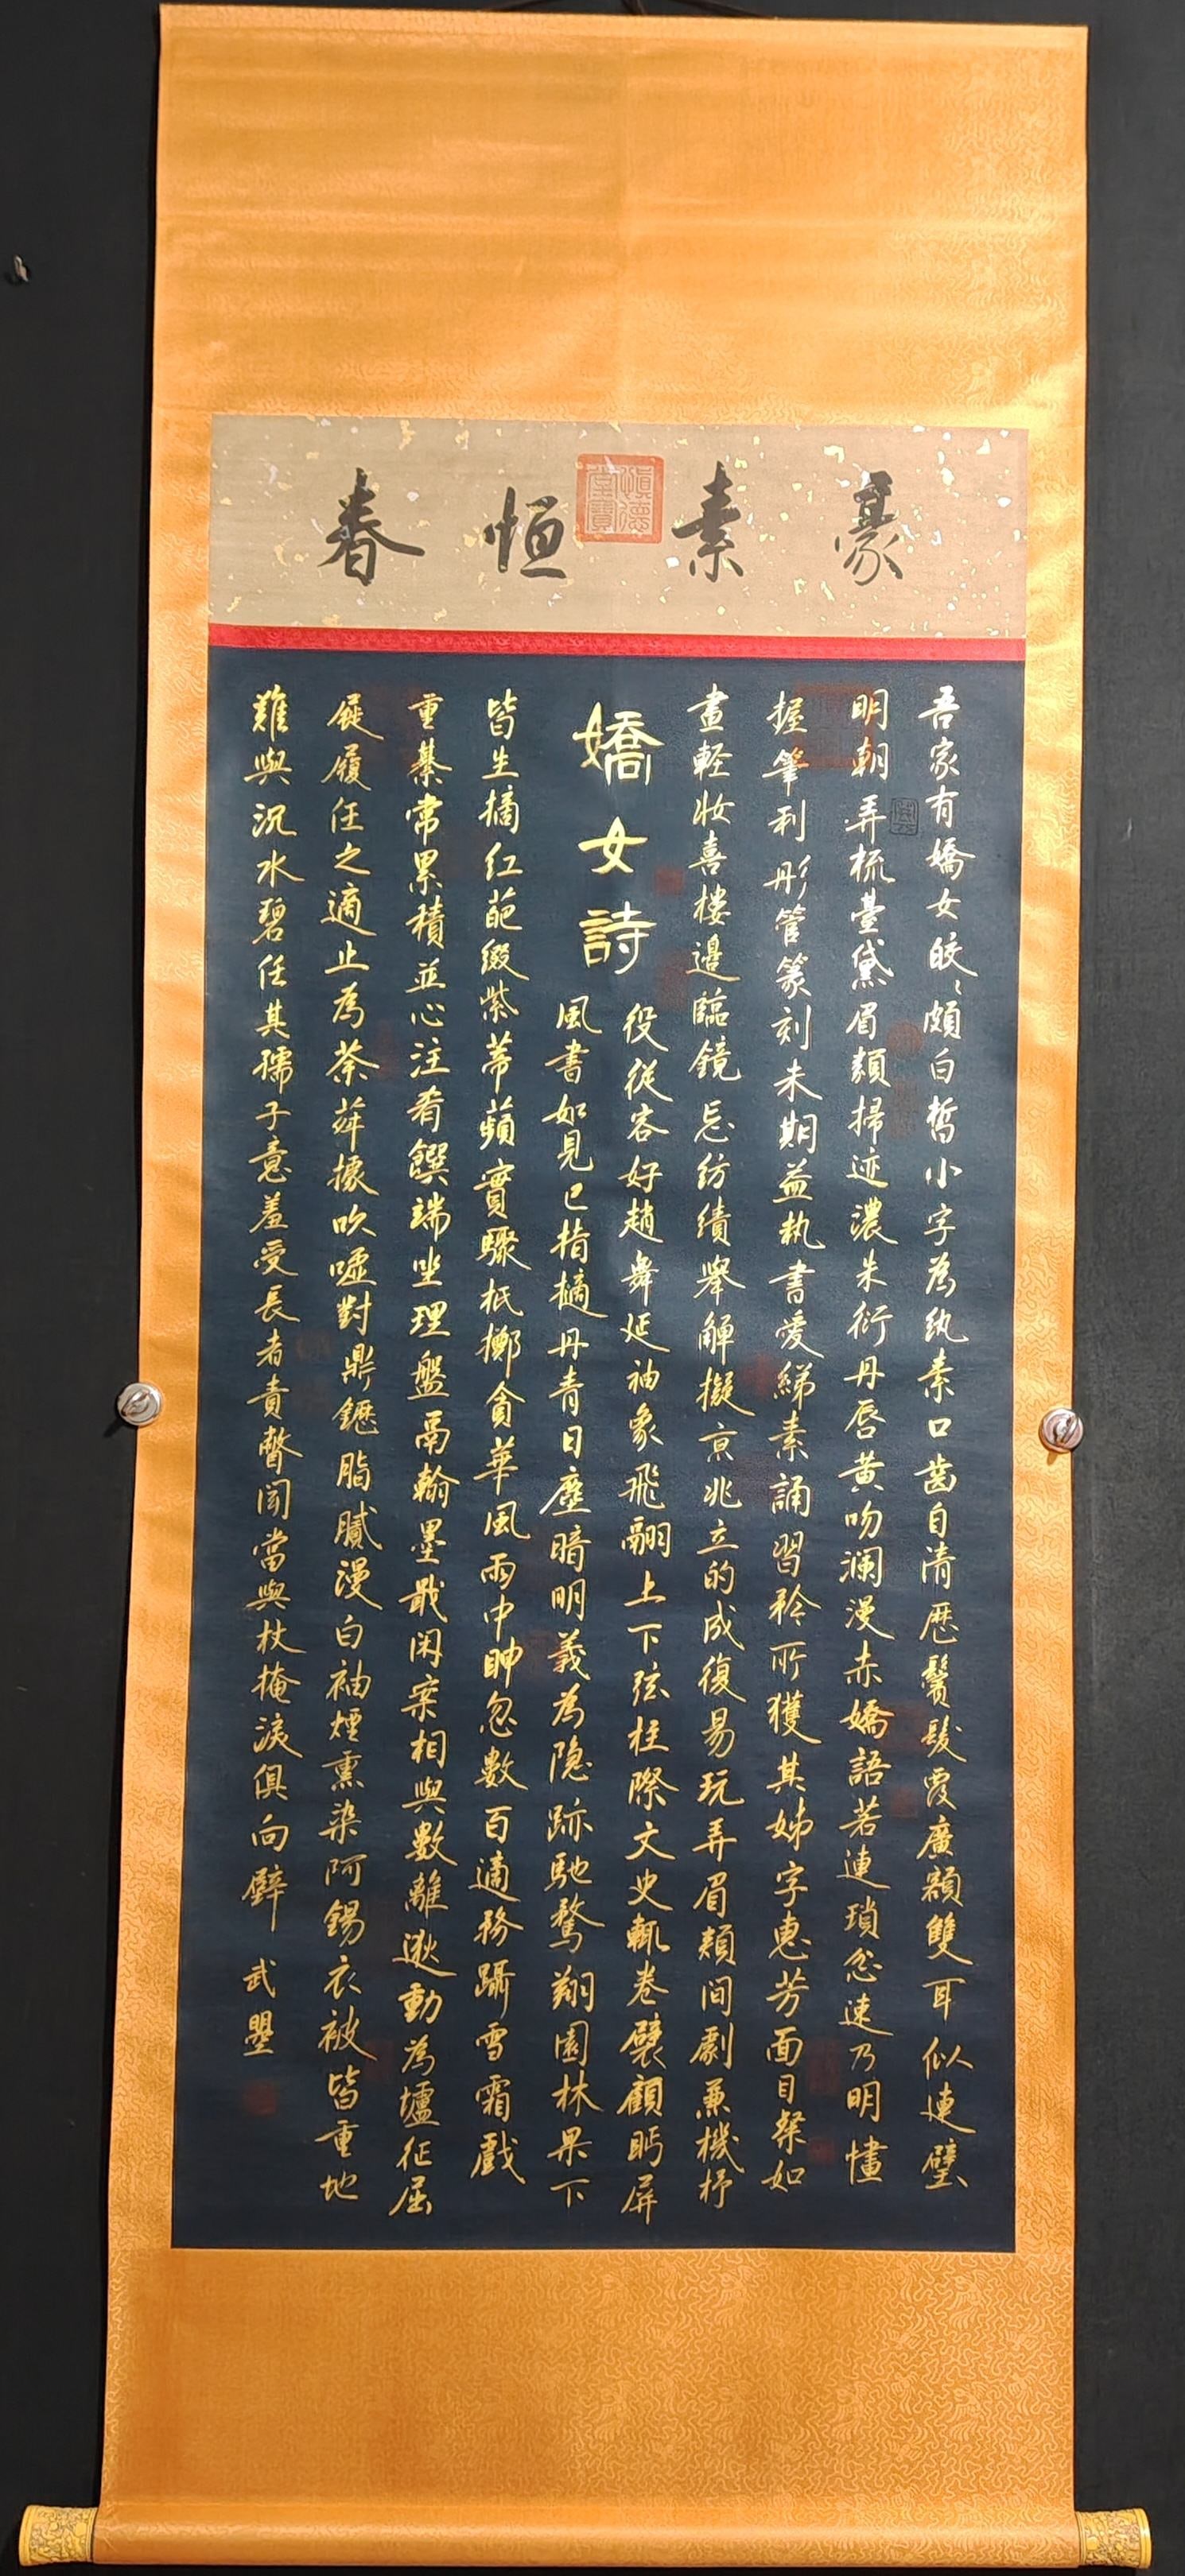 豪素恒春
慎德堂寶
吾家有嬌女皎〻頗白皙小字為紈素口齒自清歷鬢髮覆廣額雙耳似連璧
明朝弄梳臺黛眉類掃迹濃朱衍丹唇黃吻瀾漫赤嬌語若連瑣忿速乃明㦎
握筆利彤管篆刻未期益執書愛綈素誦習矜所獲其姊字惠芳面目粲如
畫輕妝喜樓邊臨鏡忘紡績舉觶擬京兆立的成復易玩弄眉頰間劇兼機杼
嬌女詩
役從容好趙舞延袖象飛翮上下弦柱際文史輒卷襞顧眄屏
風書如見已指擿丹青日塵暗明義為隐跡馳騖翔園林果下
皆生摘紅葩綴紫蒂蘋實驟抵擲貪華風雨中眒忽數百適務躡雪霜戲
重綦常累積並心注肴饌端坐理盤鬲翰墨戢閑案相與數離逖動為壚征屈
屣履任之適止為荼荈據吹噓對鼎䥶脂膩漫白袖煙熏染阿錫衣被皆重地
難與沉水碧任其孺子意羞受長者責瞥聞當與杖掩淚俱向壁 武曌